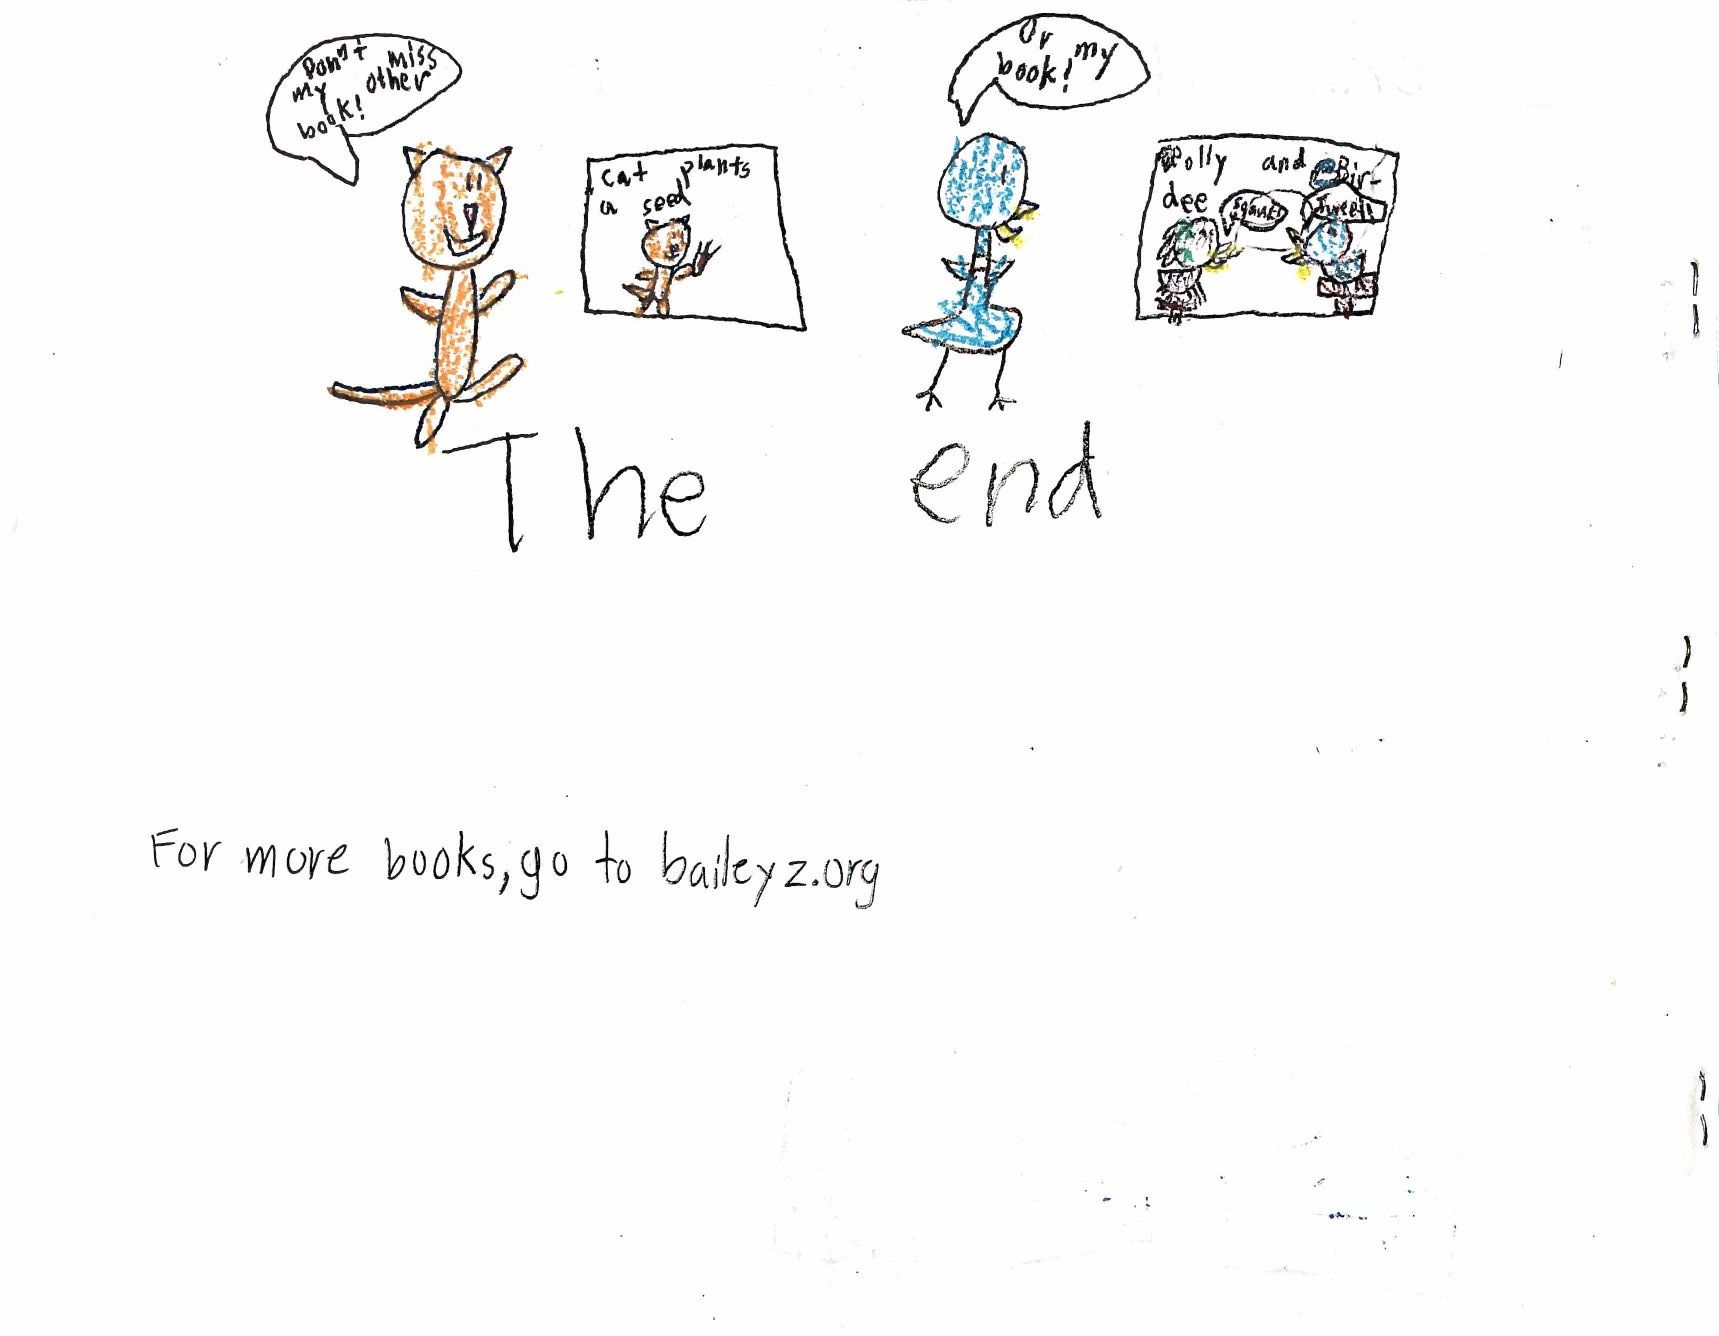 Don't miss
my other
book!
Or my
book!
cat plants
a seed
Polly and Bir-
dee
squawk
Tweet
The end
For more books, go to baileyz.org